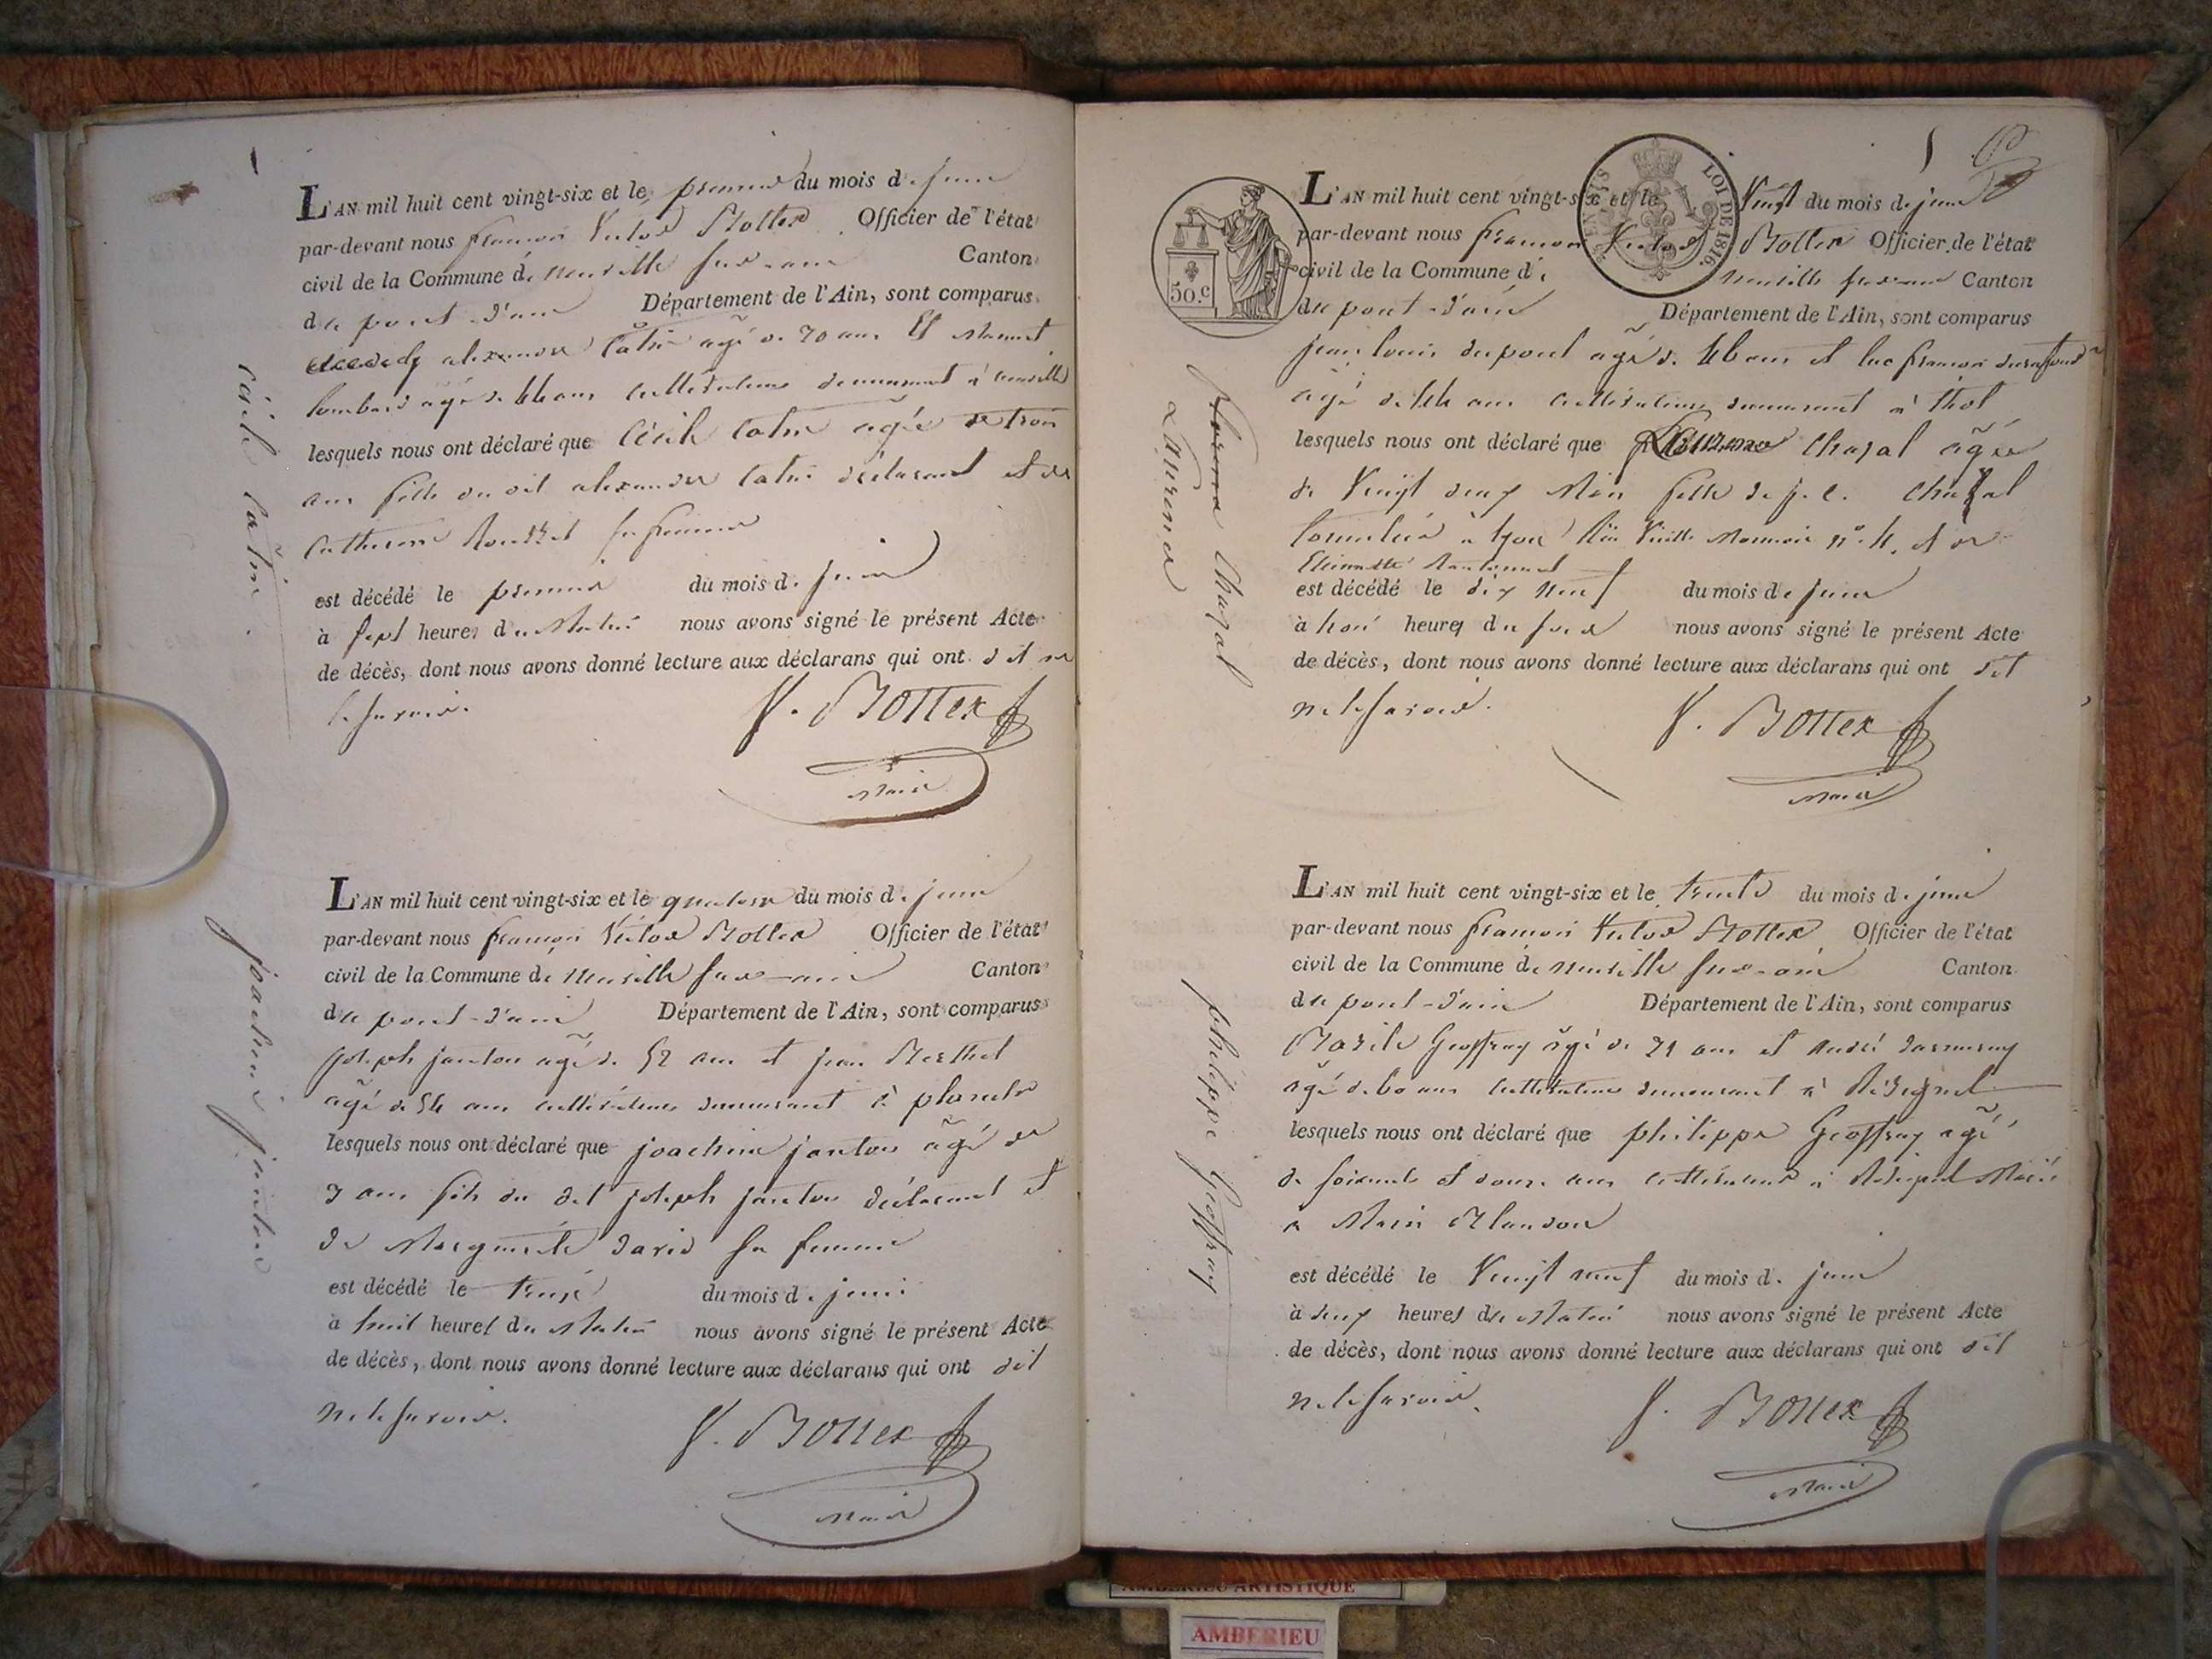 cécile catin
L'AN mil huit cent vingt-six et le premier du mois de juin
par-devant nous françois Victor Bottex Officier de l'état
civil de la Commune de neuville sur-ain Canton
du pont-d'ain Département de l'Ain, sont comparus
alexandre Catin agé de 70 ans Et
lombard agé de 44 ans cultivateurs demeurant à neuville
lesquels nous ont déclaré que Cécile Catin agée de trois
ans fille du dit alexandre Catin déclarant et de
Catherine sa femme
est décédé le premier du mois de juin
à sept heures du Matin nous avons signé le présent Acte
de décès, dont nous avons donné lecture aux déclarans qui ont dit ne
le savoir.
V. Bottex
Maire
joachim janton
L'AN mil huit cent vingt-six et le quatorze du mois de juin
par-devant nous françois Victor Bottex Officier de l'état
civil de la Commune de neuville sur-ain Canton
du pont-d'ain Département de l'Ain, sont comparus
joseph janton agé de 52 ans et jean Berthet
agé de 54 ans cultivateurs demeurant à planche
lesquels nous ont déclaré que joachim janton âgé de
7 ans fils du dit joseph janton déclarant et
de Marguerite david sa femme
est décédé le treize du mois de juin
à huit heures du Matin nous avons signé le présent Acte
de décès, dont nous avons donné lecture aux déclarans qui ont dit
ne le savoir.
V. Bottex
Maire
Chazal
Laurence
50.C
LOI DE 1816.
L'AN mil huit cent vingt-six et le Vingt du mois de juin
par-devant nous françois Victor Bottex Officier de l'état
civil de la Commune de neuville sur-ain Canton
du pont-d'ain Département de l'Ain, sont comparus
jean louis dupont agé de 46 ans et luc françois
agé de 44 ans cultivateurs demeurant à thol
lesquels nous ont déclaré que Chazal âgée
de Vingt deux Mois fille de j. C. Chazal
à lyon Rüe Vieille Monnoie n° 4. et de
Etiennette
est décédé le dix neuf du mois de juin
à trois heures du soir nous avons signé le présent Acte
de décès, dont nous avons donné lecture aux déclarans qui ont dit
ne le savoir.
V. Bottex
Maire
philippe Geoffray
L'AN mil huit cent vingt-six et le trente du mois de juin
par-devant nous françois Victor Bottex Officier de l'état
civil de la Commune de neuville sur-ain Canton
du pont-d'ain Département de l'Ain, sont comparus
Bazile Geoffray âgé de 71 ans et André
agé de 60 ans cultivateurs demeurant à Résignel
lesquels nous ont déclaré que philippe Geoffray agé
de soixante et douze ans cultivateur à Résignel Marié
à Marie Blandon
est décédé le Vingt neuf du mois de juin
à deux heures du Matin nous avons signé le présent Acte
de décès, dont nous avons donné lecture aux déclarans qui ont dit
ne le savoir.
V. Bottex
Maire
AMBERIEU ARTISTIQUE
AMBERIEU